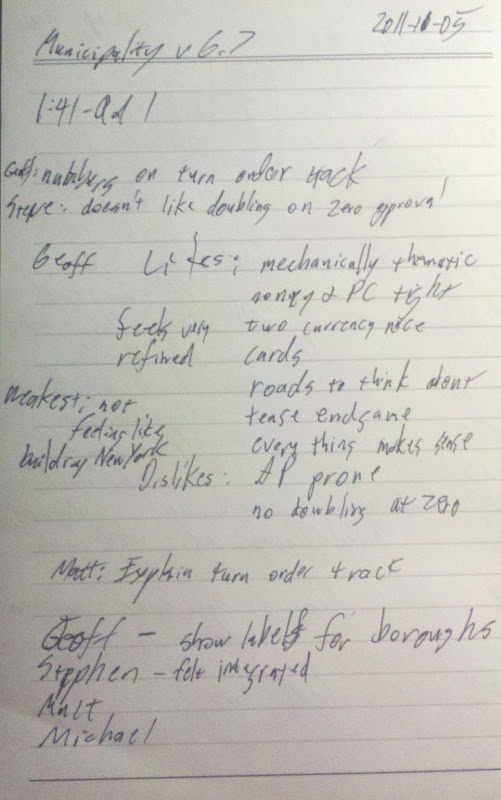 2011-11-05
Municipality v 6.7
1:41-end 1
Geoff: numbers on turn order track
Steve: doesn't like doubling on zero approval
Geoff Likes: mechanically thematic
money & PC tight
feels very two currency nice
refined cards
roads to think about
weakest: not tense endgame
feeling like every thing makes sense
building New York
Dislikes: AP prone
no doubling at zero
Matt: Explain turn order track
Geoff - show labels for boroughs
Stephen - felt integrated
Matt
Michael